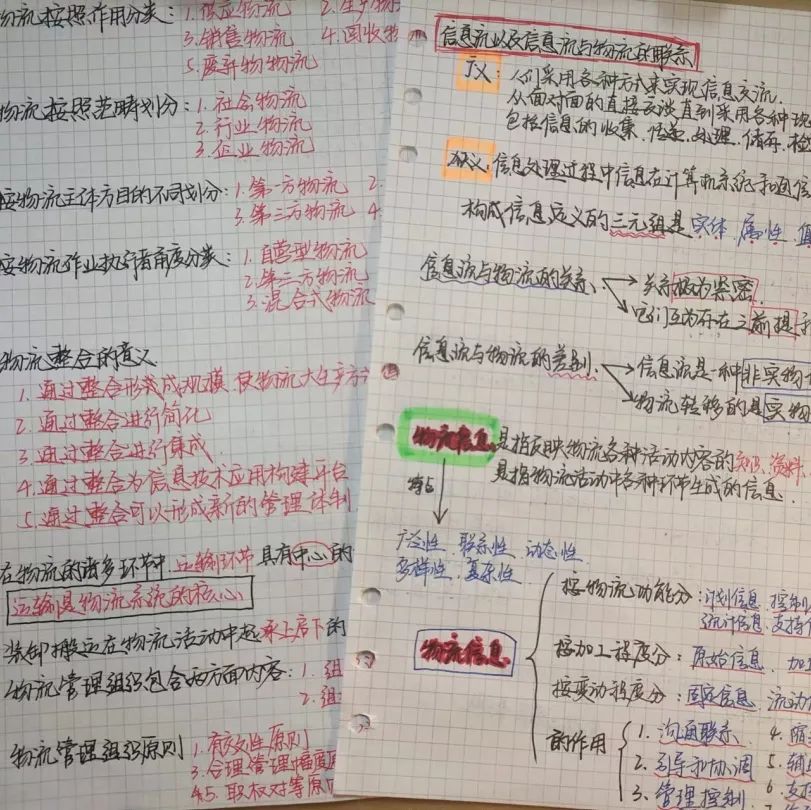 物流按照作用分类：1.供应物流 2.生产物
3.销售物流 4.回收物
5.废弃物物流
物流按照范畴划分：1.社会物流
2.行业物流
3.企业物流
按物流主体方目的不同划分：1.第一方物流 2.
3.第三方物流 4
按物流作业执行者角度分类：1.自营型物流
2.第三方物流
3.混合式物流
物流整合的意义
1.通过整合形成规模 使物流大生产方
2.通过整合进行简化
3.通过整合进行集成
4.通过整合为信息技术应用构建平台
5.通过整合可以形成新的管理体制
在物流的诸多环节中 运输环节具有中心的
运输是物流系统的核心
装卸搬运在物流活动中起承上启下的
物流管理组织包含两方面内容：1.组
2.组
物流管理组织原则 1.有效性原则
3.合理管理幅度原
45.职权对等原
信息流以及信息流与物流的联系
广义：人们采用各种方式来实现信息交流.
从面对面的直接交谈直到采用各种现
包括信息的收集、传递、处理、储存、检
狭义：信息处理过程中信息在计算机系统和通信
构成信息定义的三元组是实体、属性、值
信息流与物流的关系 关系极为紧密.
它们互为存在之前提
信息流与物流的差别 信息流是一种非实物
物流转移的是实物
物流信息 是指反映物流各种活动内容的知识、资料、
是指物流活动中各种环节生成的信息.
特点
广泛性、联系性、动态性
多样性、复杂性
物流信息
按物流功能分：计划信息、控制
统计信息、支持
按加工程度分：原始信息、加
按变动程度分：固定信息、流动
的作用 1.沟通联系 4.
2.引导和协调 5.辅
3.管理控制 6.支